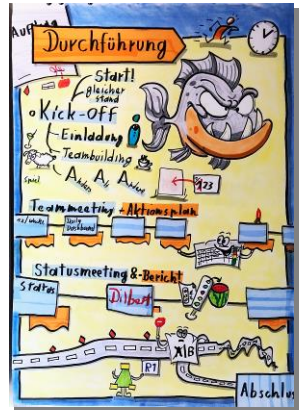 Auftrag
Durchführung
Start!
gleicher
Stand
Kick-Off
Einladung
Teambuilding
Spiel
Anders Als Andere
123
Teammeeting - Aktionsplan
Daily
Dashboard
Statusmeeting & -Bericht
Status
Dilbert
A/B
R1
Abschlus